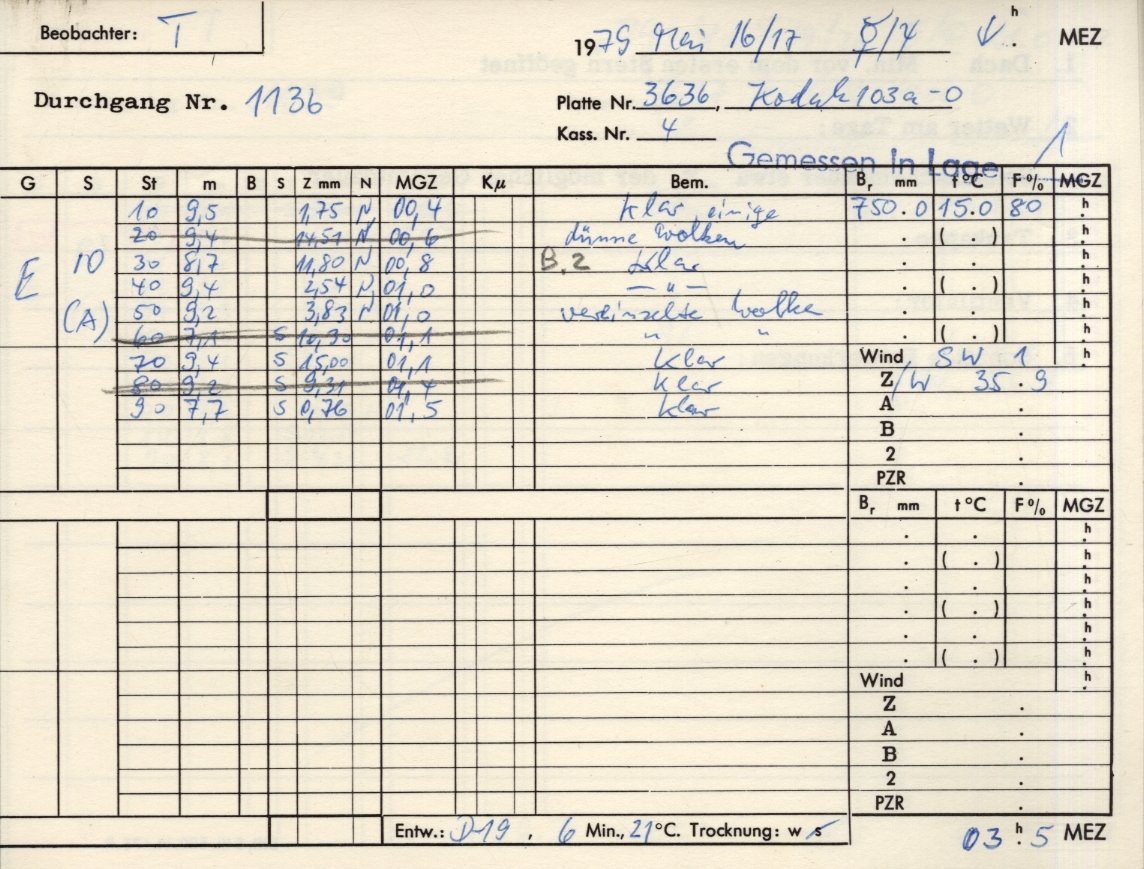 Beobachter: T
1979 Mai 16/17 ☿/♃ ↓ h. MEZ
Durchgang Nr. 1136
Platte Nr. 3636, Kodak 103a-O
Kass. Nr. 4
Gemessen in Lage 1
G S St m B S Z mm N MGZ Kμ Bem. Br mm t °C F% MGZ
10 9,5 1,75 N 00,4 klar, einige 750.0 15.0 80 h
20 9,4 14,51 N 00,6 dünne Wolken . ( . ) h
E 10 30 8,7 11,80 N 00,8 B.2 klar . . h
40 9,4 2,54 N 01,0 — " — . ( . ) h
(A) 50 9,2 3,83 N 01,0 vereinzelte Wolke . . h
60 7,1 S 10,30 01,1 " " . ( . ) h
70 9,4 S 15,00 01,1 klar Wind SW 1 h
80 9,2 S 9,31 01,4 klar Z /W 35.9
90 7,7 S 0,76 01,5 klar A .
B .
2 .
PZR .
Br mm t °C F% MGZ
. . h
. ( . ) h
. . h
. ( . ) h
. . h
. ( . ) h
Wind h
Z .
A .
B .
2 .
PZR .
Entw.: D-19, 6 Min., 21°C. Trocknung: w s 03 h. 5 MEZ